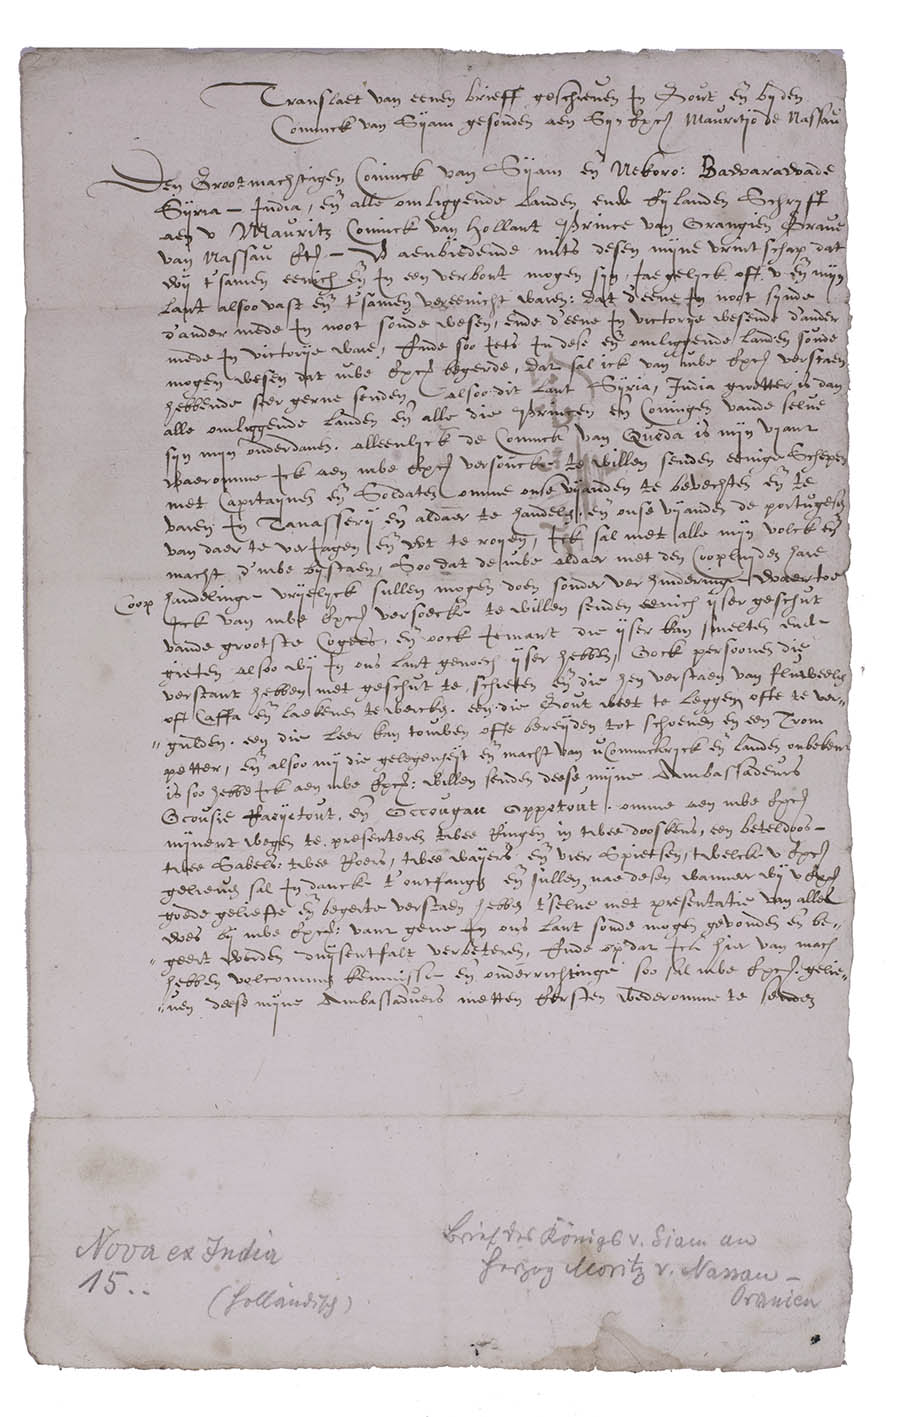 Translaet van eenen brieff geschreven In Gout en̄ bijden
Coninck van Syam gesonden aen Syn Exc: Mauritio de Nassau
Den Grootmachtigen Coninck van Syam en̄ Nekoro: Badvaradvade
Syria - India, en̄ alle omliggende Landen ende Eylanden Schryff
aen v Mauritz Coninck van Hollant Prince van Orangien Grave
van Nassau Etc - V aenbiedende mits desen mijne vrintschap dat
wy t'samen eenich en̄ In een verbont mogen syn, Jae gelyck oft v en̄ mijn
Lant alsoo vast en̄ t'samen vereenicht waren: dat d'eene In noot synde
d'ander mede In noot soude wesen, ende d'eene In victorye wesende d'ander
mede In victorye ware, Ende soo Iets In dese en̄ omliggende Landen soude
mogen wesen dat uwe Exc: begerde, dat sal ick van uwe Exc: verstaen
hebbende seer gerne senden, alsoo dit Lant Syria, India grooter is dan
alle omliggende Landen en̄ alle die Princen en̄ Coningen vande selve
syn mijn onderdanen. alleenlyck de Coninck van Queda is mijn vyant
waeromme Ick aen uwe Exc: versoucke te willen senden eenige Schepen
met Capitaynen en̄ Soldaten omme onse vyanden te bevechten en̄ te
varen In Tanassery en̄ aldaer te handelen, en̄ onse vyanden de portugesen
van daer te verJagen en̄ wt te royen, Ick sal met alle mijn volck en̄
macht d'uwe bystaen, Soo dat de uwe aldaer met den Coopluyden hare
Coop handelinge vryelyck sullen mogen doen sonder verhinderinge waer toe
Ick van uwe Exc: versoecke te willen senden eenich yser geschut
vande grootste Cogels, en̄ oock Iemant die yser kan smelten ende
gieten alsoo wy In ons Lant genoech yser hebben, Oock persoonen die
verstant hebben met geschut te schieten en̄ die hen verstaen van fluweelen
oft Caffa en̄ Laekenen te wercken. een die Gout weet te Leggen ofte te ver=
=gulden. een die Leer kan touwen ofte bereyden tot schoenen en een Trom
petter, en̄ alsoo mij die gelegenheyt en̄ macht van u Coninckryck en̄ Landen onbekent
is soo hebbe Ick aen uwe Exc: willen senden deese mijne Ambassadeurs
omme aen uwe Exc:
mijnent wegen te presenteren twee Ringen in twee dooskens, een beteldoos -
twee Sabels: twee Roers, twee wayers en̄ vier Spietsen, twelck v Exc:
gelieven sal In danck t'ontfangen en̄ sullen nae desen wanneer wy v Exc:
goede geliefte en̄ begeerte verstaen hebben t'selve met presentatie van alle
wes by uwe Exc: vant gene In ons Lant soude mogen gevonden en̄ be=
=geert worden duysentfalt verbeteren, Ende opdat Ick hier van mach
hebben volcomen kennisse en̄ onderrichtinge soo sal uwe Exc: gelie=
=ven deese mijne Ambassaduers metten Eersten wederomme te senden
Nova ex India
15..
(Holländisch)
Brief des Königs v. Siam an
Herzog Moritz v. Nassau -
Oranien